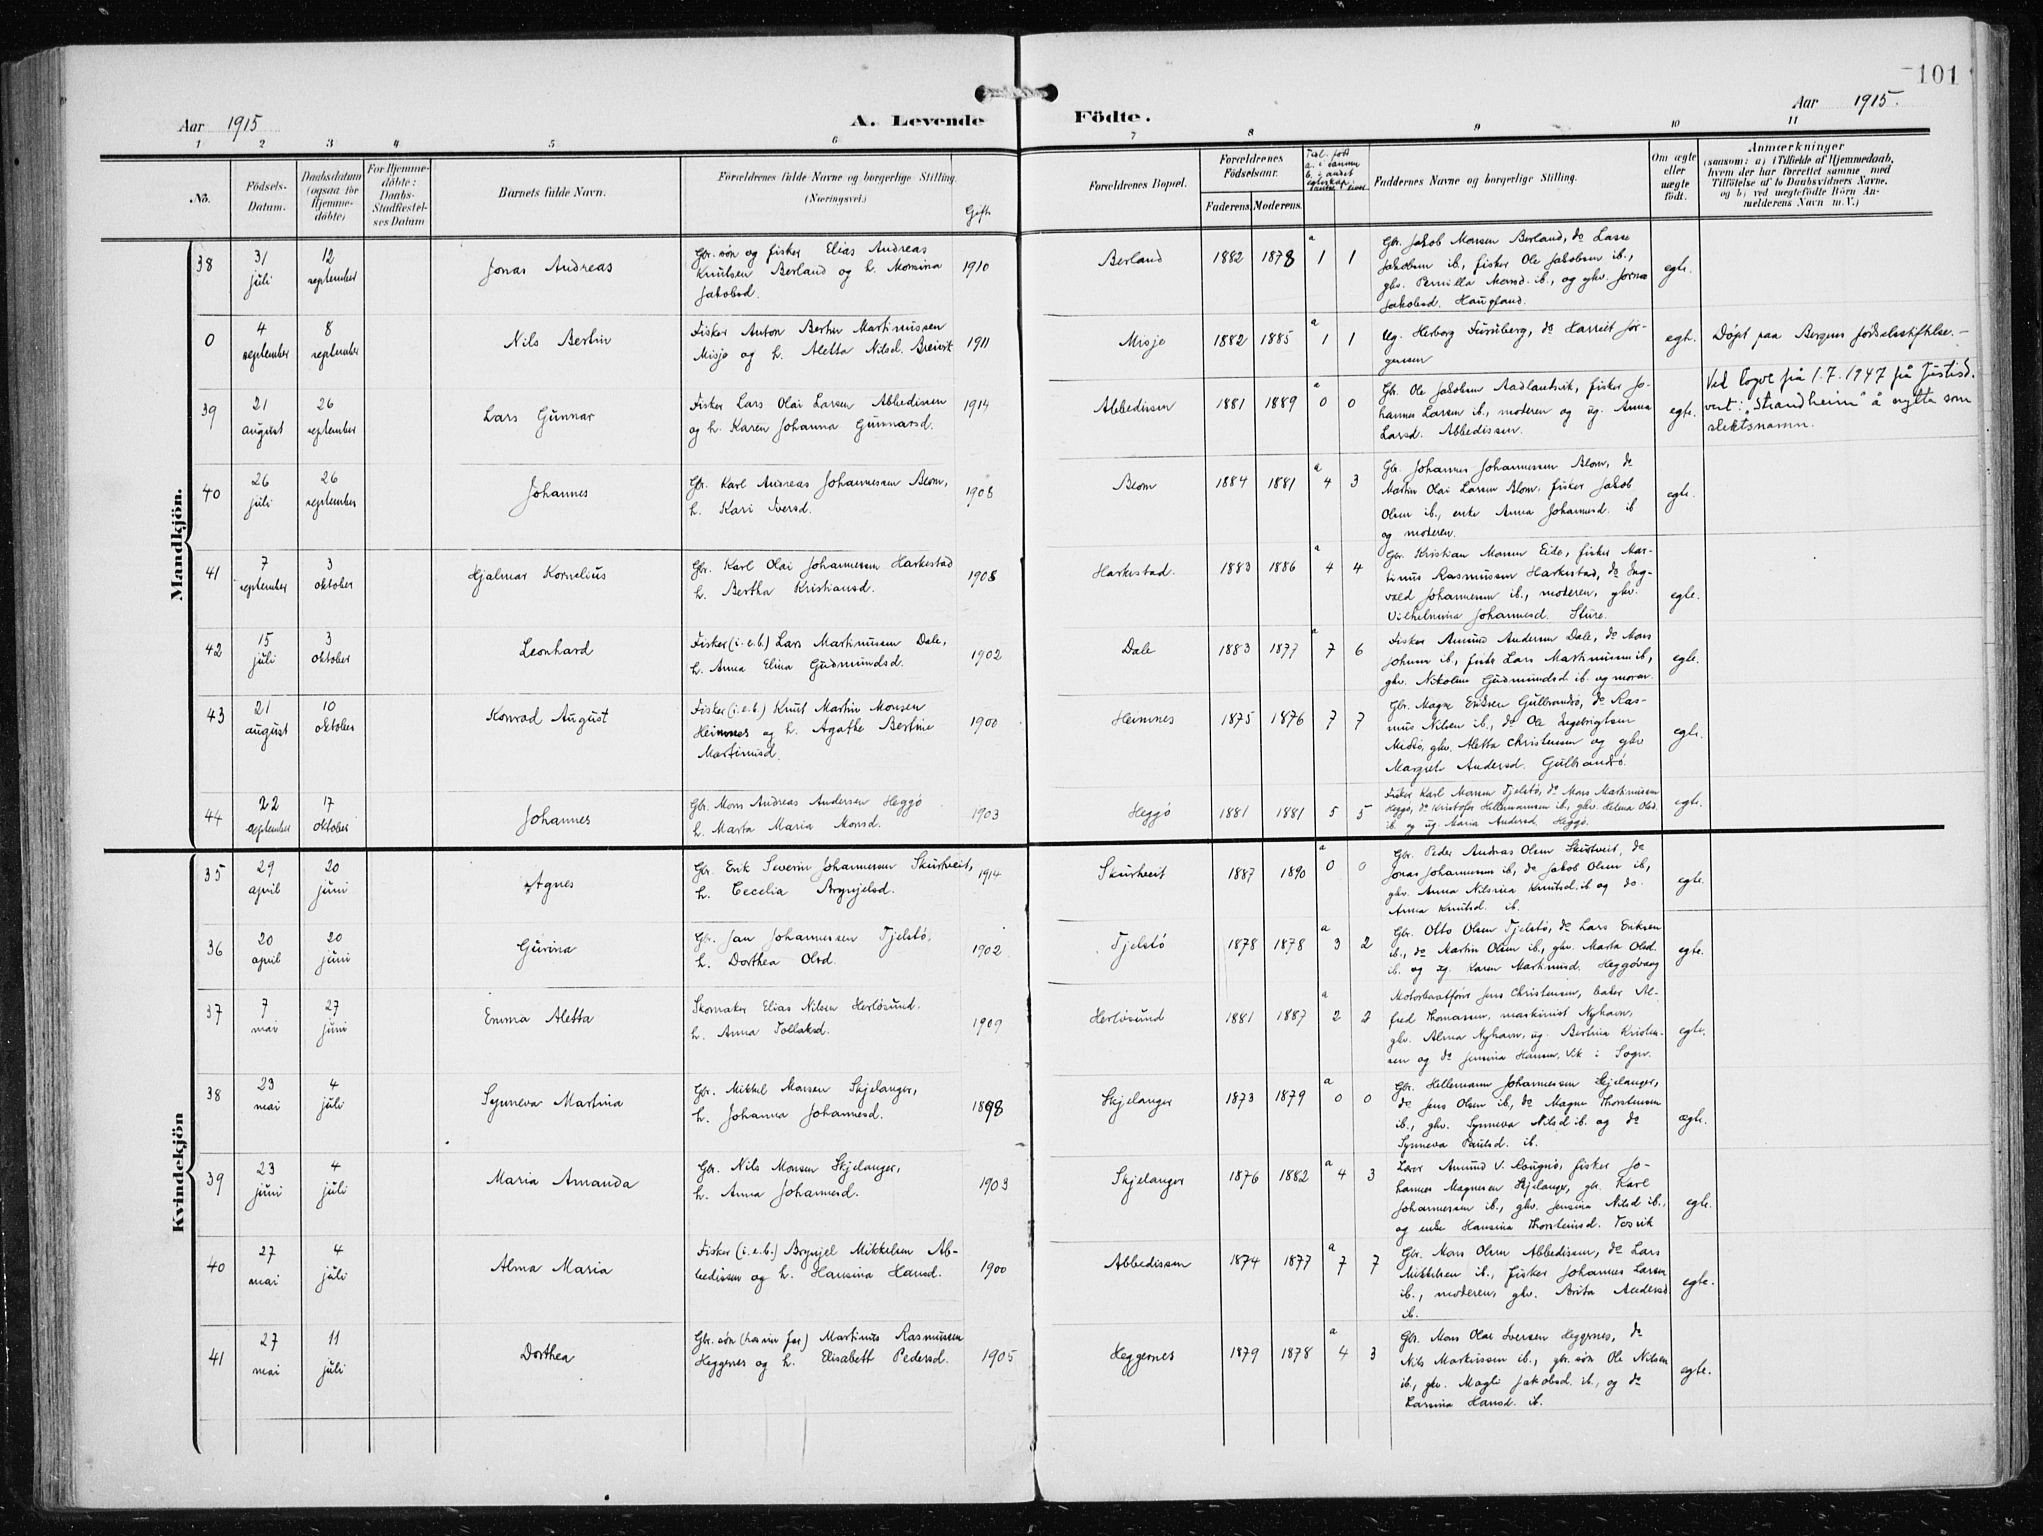 101
Aar 1915
A. Levende
Födte.
Aar 1915.
1 2 3 4 5 6 7 8 9 10 11
No.
Födsels-
Datum.
Daabsdatum
(ogsaa for
Hjemme-
døbte)
For Hjemme-
døbte:
Daabs-
Stadfæstel-
ses Datum
Barnets fulde Navn.
Forældrenes fulde Navne og borgerlige Stilling
(Næringsvei.)
Gift
Forældrenes Bopæl.
Forældrenes
Födselsaar.
Faderens.
Moderens.
Faddernes Navne og borgerlige Stilling.
Om ægte
eller
uægte
födt.
Anmærkninger
(saasom: a) i Tilfælde af Hjemmedaab,
hvem der har forrettet samme med
Tilföielse af to Daabsvidners Navne,
og b) ved uægtefödte Börn An-
melderens Navn m. V.)
Mandkjön.
38
31
juli
12
september
Jonas Andreas
Gbr. søn og fisker Elias Andreas
Knutsen Berland og h. Monsina
Jakobsd.
1910
Berland
1882
1878
a
1
1
Gbr. Jakob Monsen Berland, do Lasse
Jakobsen ib., fisker Ole Jakobsen ib.,
gkv. Pernilla Monsd. ib., og gkv. Jorina
Jakobsd. Haugland.
egte.
0
4
september
8
september
Nils Bertin
Fisker Anton Bertin Martinussen
Misje og h. Aletta Nilsd. Breivik
1911
Misje
1882
1885
a
1
1
Ug. Herborg Furuberg, do Harriet Jør-
gensen
egte.
Døpt paa Bergens fødselsstiftelse.
39
21
august
26
september
Lars Gunnar
Fisker Lars Olai Larsen Abbedissen
og h. Karen Johanna Gunnarsd.
1914
Abbedissen
1881
1889
a
0
0
Gbr. Ole Jakobsen Aadlandsvik, fisker Jo-
hannes Larsen ib., moderen og ug. Anna
Larsd. Abbedissen.
egte.
på 1.7.1947 på Justisd.
"Strandheim" å nytta som
slektsnamn.
40
26
juli
26
september
Johannes
Gbr. Karl Andreas Johannessen Blom,
h. Kari Iversd.
1908
Blom
1884
1881
a
4
3
Gbr. Johannes Johannessen Blom, do
Martin Olai Larsen Blom, fisker Jakob
Olsen ib., enke Anna Johannesd. ib
og moderen.
egte.
41
7
september
3
oktober
Hjalmar Kornelius
Gbr. Karl Olai Johannessen Harkestad
h. Bertha Kristiansd.
1908
Harkestad.
1883
1886
a
4
4
Gbr. Kristian Monsen Eide, fisker Mar-
tinus Rasmussen Harkestad, do Ing-
vald Johannessen ib., moderen, gkv.
Vilhelmina Johannesd. Sture.
egte.
42
15
juli
3
oktober
Leonhard
Fisker (i.e.b.) Lars Martinussen Dale,
h. Anna Elina Gudmundsd.
1902
Dale
1883
1877
a
7
6
Fisker Amund Andersen Dale, do Mons
Johnsen ib., fisker Lars Martinussen ib.,
gkv. Nikoline Gudmundsd ib. og moren.
egte.
43
21
august
10
oktober
Konrad August
Fisker (i.e.b.) Knut Martin Monsen
Heimnes og h. Agathe Bertine
Martinusd.
1900
Heimnes
1875
1876
7
7
Gbr. Magne Endsen Gulbrandsø, do Ras-
mus Nilsen ib., do Ole Ingebrigtsen
Midtø, gkv. Aletta Christensen og gkv
Margrete Andersd. Gulbrandsø.
egte.
44
22
september
17
oktober
Johannes
Gbr. Mons Andreas Andersen Heggø
h. Marta Maria Monsd.
1903
Heggø
1881
1881
5
5
Fisker Karl Monsen Tjelstø, do Mons Martinussen
Heggø, do Kristofer Hellemannsen ib., gkv. Helena Olsd.
ib. og ug. Maria Andersd. Heggø.
egte.
Kvindekjön
35
29
april
20
juni
Agnes
Gbr. Erik Severin Johannessen Skurtveit,
h. Cecelia Brynjelsd.
1914
Skurtveit
1887
1890
a
0
0
Gbr. Peder Andreas Olsen Skurtveit, do
Jonas Johannessen ib, do Jakob Olsen ib,
gkv. Anna Nilsina Knutsd. ib og do.
Anna Knutsd. ib.
egte.
36
20
april
20
juni
Gurina
Gbr. Jan Johannessen Tjelstø,
h. Dorthea Olsd.
1902
Tjelstø
1878
1878
a
3
2
Gbr. Otto Olsen Tjelstø, do Lars Eriksen
ib., do Martin Olsen ib., gkv. Marta Olsd.
ib. og ug. Karen Martinusd. Heggøvaag
egte.
37
7
mai
27
juni
Emma Aletta
Skomaker Elias Nilsen Herløsund.
h. Anna Tollaksd.
1909
Herløsund
1881
1887
a
2
2
Motorbaatfører Jens Christensen, baker Al-
fred Thomassen, maskinist Nyhavn,
gkv. Alma Nyhavn, ug. Bertina Kristen-
sen og do Jensina Hansen, Vik i Sogn.
egte.
38
23
mai
4
juli
Synneva Martina
Gbr. Mikkel Monsen Skjelanger,
h. Johanna Johannesd.
1898
Skjelanger
1873
1879
a
0
0
Gbr. Hellemann Johannessen Skjelanger,
do Jens Olsen ib., do Magne Thorstensen
ib., gkv. Synneva Nilsd ib. og do
Synneva Paulsd. ib.
ægte.
39
23
juni
4
juli
Maria Amanda
Gbr. Nils Monsen Skjelanger,
h. Anna Johannesd.
1903
Skjelanger
1876
1882
a
4
3
Lærer Amund V. Rongnø, fisker Jo-
hannes Magnesen Skjelanger, gbr. Karl
Johannessen ib., gkv. Jensina Nilsd ib.,
og enke Hansina Thorsteinsd. Tosvik
egte.
40
27
mai
4
juli
Alma Maria
Fisker (i.e.b.) Brynjel Mikkelsen Ab-
bedissen og h. Hansina Hansd.
1900
Abbedissen
1874
1877
a
7
7
Gbr. Mons Olsen Abbedissen, do Lars
Mikkelsen ib., fisker Johannes Larsen
ib., moderen, gkv. Brita Andersd
ib.
egte.
41
27
mai
11
juli
Dorthea
Gbr. søn (hos sin far) Martinus Rasmussen
Heggernes og h. Elisabeth Pedersd.
1905
Heggernes
1879
1878
a
4
3
Gbr. Mons Olai Iversen Heggernes, do
Nils Markussen ib., gbr. søn Ole Nilsen
ib., gkv. Magli Jakobsd. ib., og do
Larsina Hansd. ib.
egte.